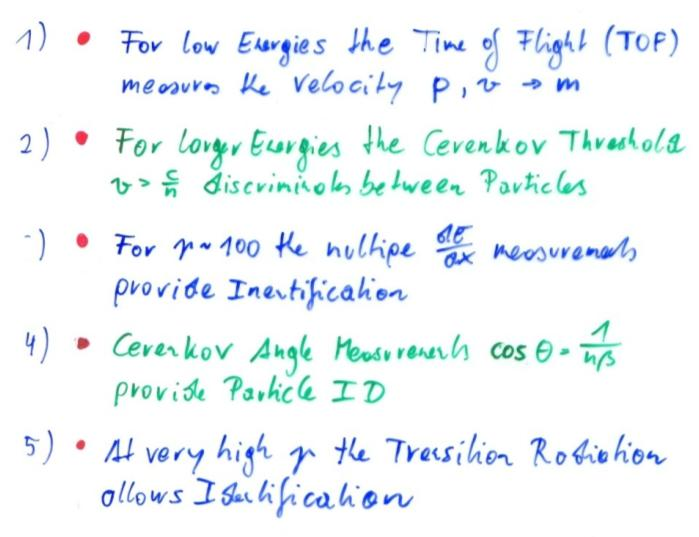 1) • For low Energies the Time of Flight (TOF)
measures the Velocity p, v → m
2) • For larger Energies the Cerenkov Threshold
v > c/n discriminates between Particles
-) • For γ ~ 100 the multipe dE/dx measurements
provide Inentification
4) • Cerenkov Angle Measurements cos θ = 1/nβ
provide Particle ID
5) • At very high γ the Transition Radiation
allows Identification